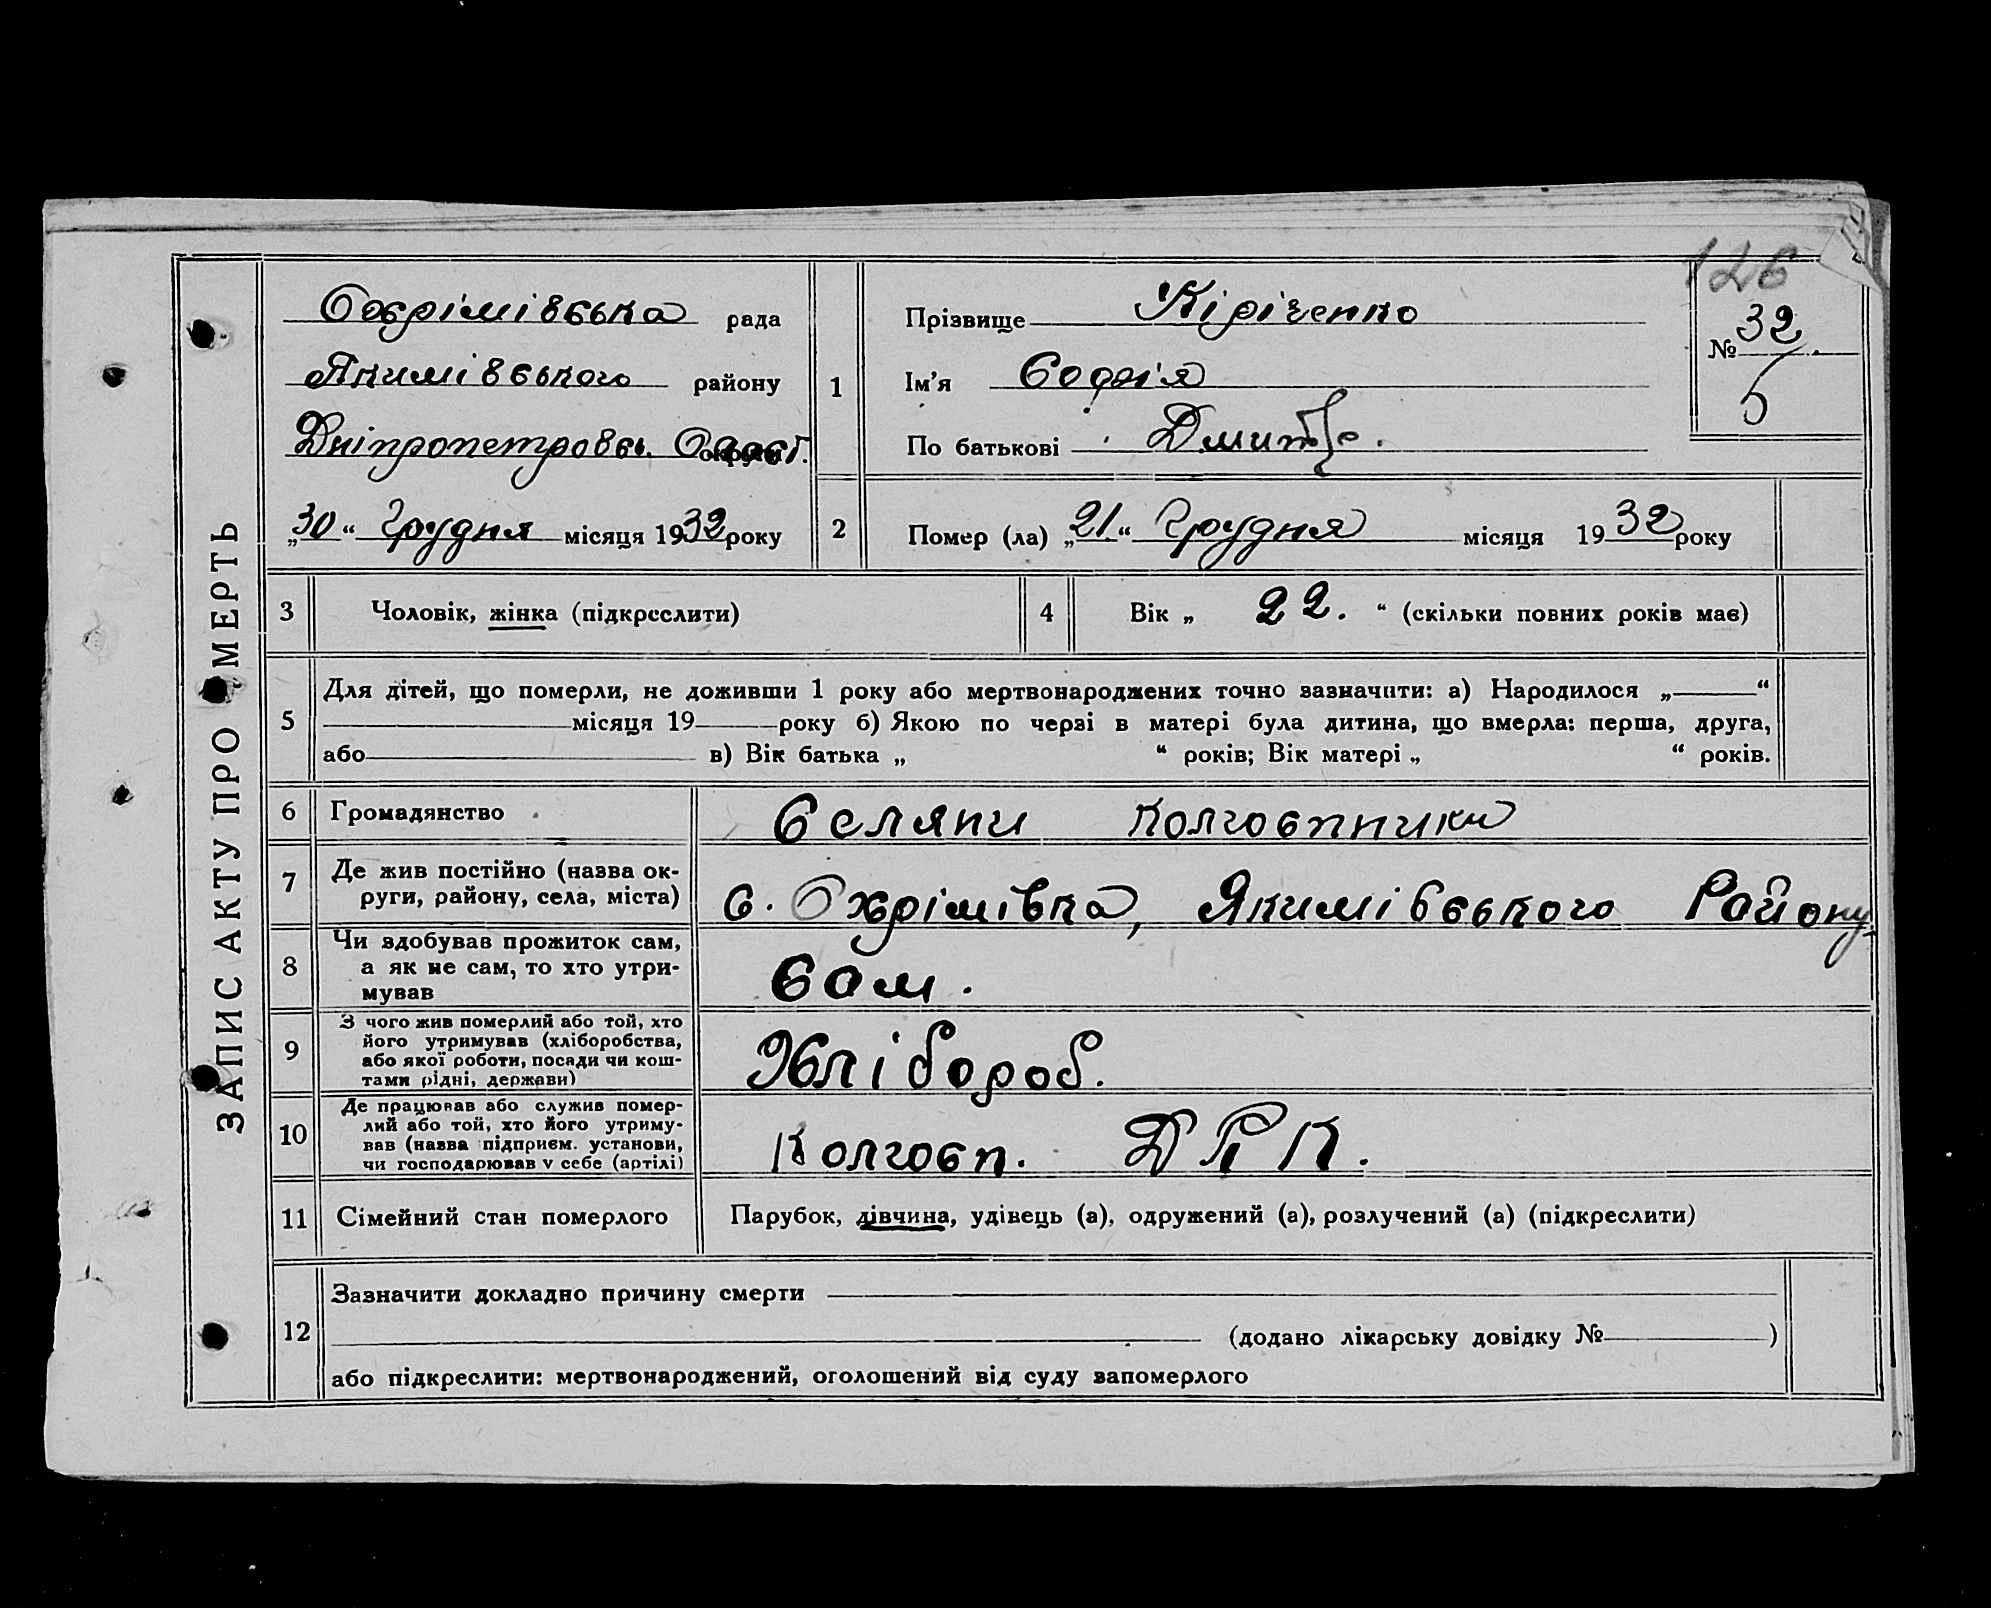 126
ЗАПИС АКТУ ПРО СМЕРТЬ
Охрімівська рада
Якимівського району
Дніпропетровсь. Област.
„30“ Грудня місяця 1932 року
1
Прізвище Кіріченко
Ім’я Софія
По батькові Дмитр.
№ 32
5
2
Помер (ла) „21“ Грудня місяця 1932 року
3
Чоловік, жінка (підкреслити)
4
Вік „ 22. “ (скільки повних років має)
5
Для дітей, що померли, не доживши 1 року або мертвонароджених точно зазначити: а) Народилося „ “
місяця 19 року б) Якою по черзі в матері була дитина, що вмерла: перша, друга,
або в) Вік батька „ “ років; Вік матері „ “ років.
6
Громадянство
Селяни Колгоспники
7
Де жив постійно (назва ок-
руги, району, села, міста)
с. Охрімівка, Якимівського Району
8
Чи здобував прожиток сам,
а як не сам, то хто утри-
мував
Сам.
9
З чого жив померлий або той, хто
його утримував (хліборобства,
або якої роботи, посади чи кош-
тами рідні, держави)
Хлібороб.
10
Де працював або служив помер-
лий або той, хто його утриму-
вав (назва підприєм. установи,
чи господарював у себе (артілі)
Колгосп.
11
Сімейний стан померлого
Парубок, дівчина, удівець (а), одружений (а), розлучений (а) (підкреслити)
12
Зазначити докладно причину смерти
(додано лікарську довідку № )
або підкреслити: мертвонароджений, оголошений від суду запомерлого